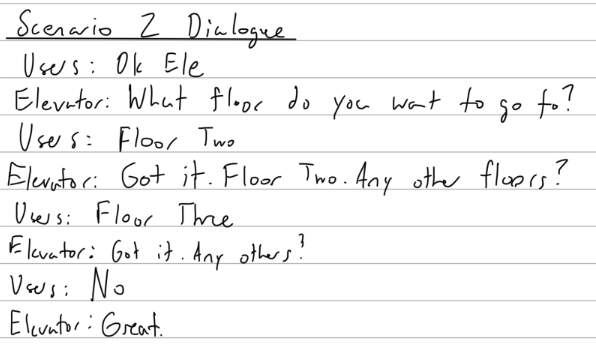 Scenario 2 Dialogue
Users: Ok Ele
Elevator: What floor do you want to go to?
Users: Floor Two
Elevator: Got it. Floor Two. Any other floors?
Users: Floor Three
Elevator: Got it. Any others?
Users: No
Elevator: Great.